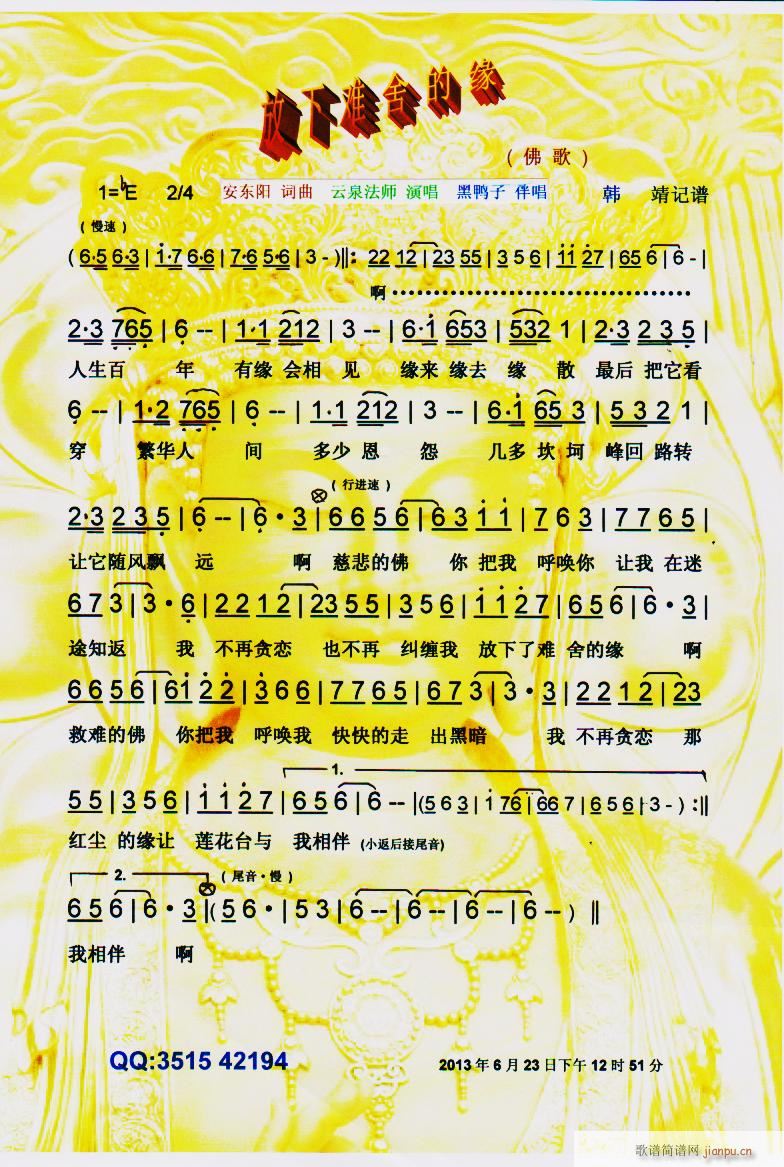 放下难舍的缘
（佛 歌）
1=♭E 2/4 安东阳 词曲 云泉法师 演唱 黑鸭子 伴唱 韩 靖记谱
（慢速）
( 6·5 6·3 | 1·7 6·6 | 7·6 5·6 | 3 - ) ‖: 22 12 | 23 55 | 3 5 6 | 11 27 | 65 6 | 6 - |
啊··································
2·3 765 | 6 -- | 1·1 212 | 3 -- | 6·1 653 | 532 1 | 2·3 2 3 5 |
人生百 年 有缘 会相 见 缘来 缘去 缘 散 最后 把它看
6 -- | 1·2 765 | 6 -- | 1·1 212 | 3 -- | 6·1 65 3 | 5 3 2 1 |
穿 繁华人 间 多少 恩 怨 几多 坎 坷 峰回 路转
（行进速）
2·3 2 3 5 | 6 -- | 6 · 3 | 6 6 5 6 | 6 3 1 1 | 7 6 3 | 7 7 6 5 |
让它随风飘 远 啊 慈悲的佛 你 把我 呼唤你 让我 在迷
6 7 3 | 3 · 6 | 2 2 1 2 | 23 5 5 | 3 5 6 | 1 1 2 7 | 6 5 6 | 6 · 3 |
途知返 我 不再贪恋 也不再 纠缠我 放下了难 舍的缘 啊
6 6 5 6 | 61 2 2 | 3 6 6 | 7 7 6 5 | 6 7 3 | 3 · 3 | 2 2 1 2 | 23
救难的佛 你把我 呼唤我 快快的走 出黑暗 我 不再贪恋 那
1.
5 5 | 3 5 6 | 1 1 2 7 | 6 5 6 | 6 -- | (5 6 3 | 1 76 | 66 7 | 6 5 6 | 3 - ) :‖
红尘 的缘让 莲花台与 我相伴 (小返后接尾音)
2. （尾音·慢）
6 5 6 | 6 · 3 | ( 5 6 · | 5 3 | 6 -- | 6 -- | 6 -- | 6 -- ) ‖
我相伴 啊
QQ:3515 42194 2013 年 6 月 23 日下午 12 时 51 分
歌谱简谱网 jianpu.cn